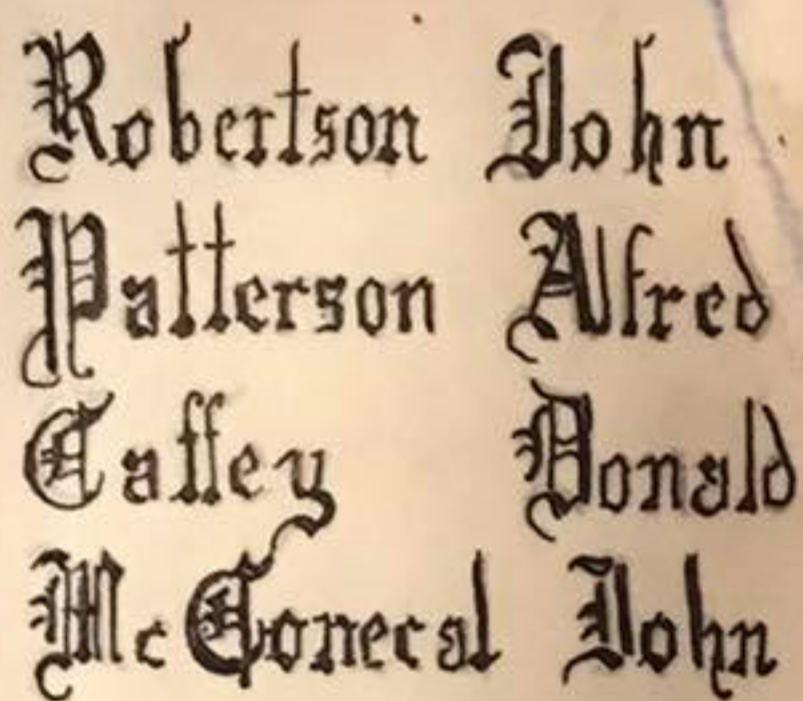 Robertson John
Patterson Alfred
Caffey Donald
McConecal John